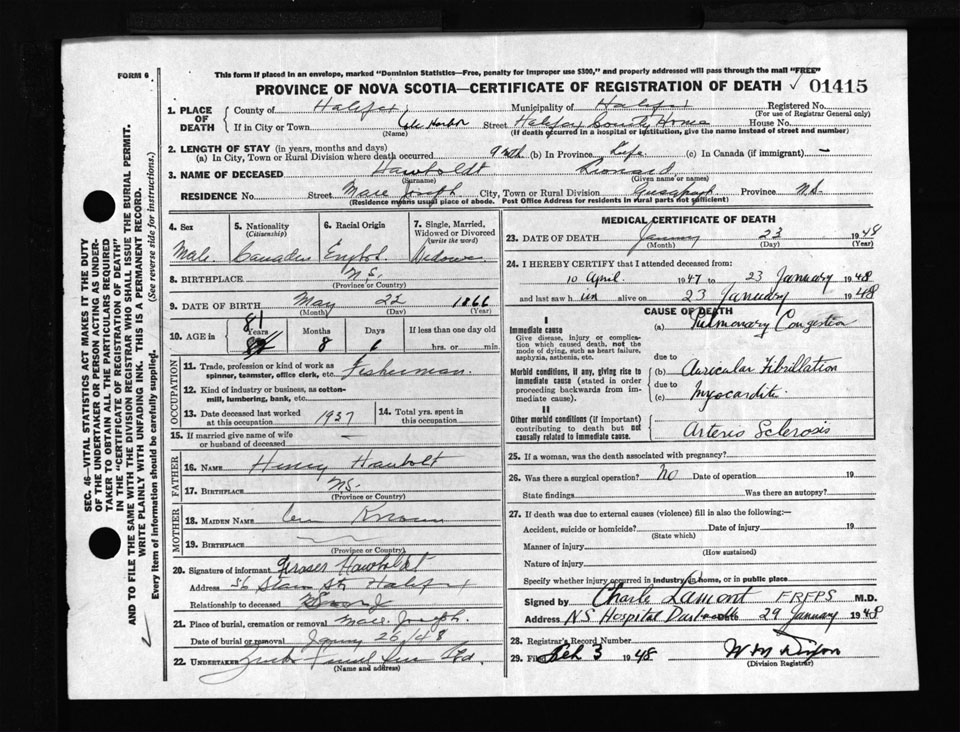 FORM 6
This form if placed in an envelope, marked "Dominion Statistics—Free, penalty for improper use $300," and properly addressed will pass through the mail "FREE"
PROVINCE OF NOVA SCOTIA—CERTIFICATE OF REGISTRATION OF DEATH 01415
1. PLACE OF DEATH
County of Halifax Municipality of Halifax Registered No.
(For use of Registrar General only)
If in City or Town Cole Harbor Street Halifax County Home House No.
(Name) (If death occurred in a hospital or institution, give the name instead of street and number)
2. LENGTH OF STAY (in years, months and days)
(a) In City, Town or Rural Division where death occurred 9 mth (b) In Province Life (c) In Canada (if immigrant) —
3. NAME OF DECEASED Hawboldt
(Surname) (Given name or names)
RESIDENCE No. Street City, Town or Rural Division Province N.S.
(Residence means usual place of abode. Post Office Address for residents in rural parts not sufficient)
4. Sex
Male
5. Nationality
(Citizenship)
6. Racial Origin
7. Single, Married, Widowed or Divorced
(write the word)
8. BIRTHPLACE N.S.
(Province or Country)
9. DATE OF BIRTH May 22 1866
(Month) (Day) (Year)
10. AGE in
81
Years Months Days If less than one day old
8 hrs. or min.
OCCUPATION
11. Trade, profession or kind of work as spinner, teamster, office clerk, etc. Fisherman.
12. Kind of industry or business, as cotton-mill, lumbering, bank, etc.
13. Date deceased last worked at this occupation 1937
14. Total yrs. spent in this occupation
15. If married give name of wife or husband of deceased —
FATHER
16. NAME Henry Haubolt
17. BIRTHPLACE N.S.
(Province or Country)
MOTHER
18. MAIDEN NAME
19. BIRTHPLACE
(Province or Country)
20. Signature of informant Hawboldt
Address 56 St. Halifax
Relationship to deceased
21. Place of burial, cremation or removal
Date of burial or removal 26/48
22. UNDERTAKER Ltd.
(Name and address)
MEDICAL CERTIFICATE OF DEATH
23. DATE OF DEATH January 23 1948
(Month) (Day) (Year)
24. I HEREBY CERTIFY that I attended deceased from
10 April 1947 to 23 January 1948
and last saw him alive on 23 January 1948
CAUSE OF DEATH
I
Immediate cause
Give disease, injury or complication which caused death, not the mode of dying, such as heart failure, asphyxia, asthenia, etc.
(a) Pulmonary Congestion
due to
Morbid conditions, if any, giving rise to immediate cause (stated in order proceeding backwards from immediate cause).
(b) Auricular Fibrillation
due to
(c) Myocarditis
II
Other morbid conditions (if important) contributing to death but not causally related to immediate cause.
Arterio Sclerosis
25. If a woman, was the death associated with pregnancy?
26. Was there a surgical operation? No Date of operation 19
State findings Was there an autopsy?
27. If death was due to external causes (violence) fill in also the following:—
Accident, suicide or homicide? Date of injury 19
(State which)
Manner of injury
(How sustained)
Nature of injury
Specify whether injury occurred in industry, in home, or in public place
Signed by Charles Lamont FRFPS M.D.
Address NS Hospital Date 29 January 1948
28. Registrar's Record Number
29. Filed Feb 3 1948
(Division Registrar)
SEC. 46—VITAL STATISTICS ACT MAKES IT THE DUTY
OF THE UNDERTAKER OR PERSON ACTING AS UNDER-
TAKER TO OBTAIN ALL THE PARTICULARS REQUIRED
IN THE "CERTIFICATE OF REGISTRATION OF DEATH"
AND TO FILE THE SAME WITH THE DIVISION REGISTRAR WHO SHALL ISSUE THE BURIAL PERMIT.
WRITE PLAINLY WITH UNFADING INK. THIS IS A PERMANENT RECORD.
Every item of information should be carefully supplied. (See reverse side for instructions.)